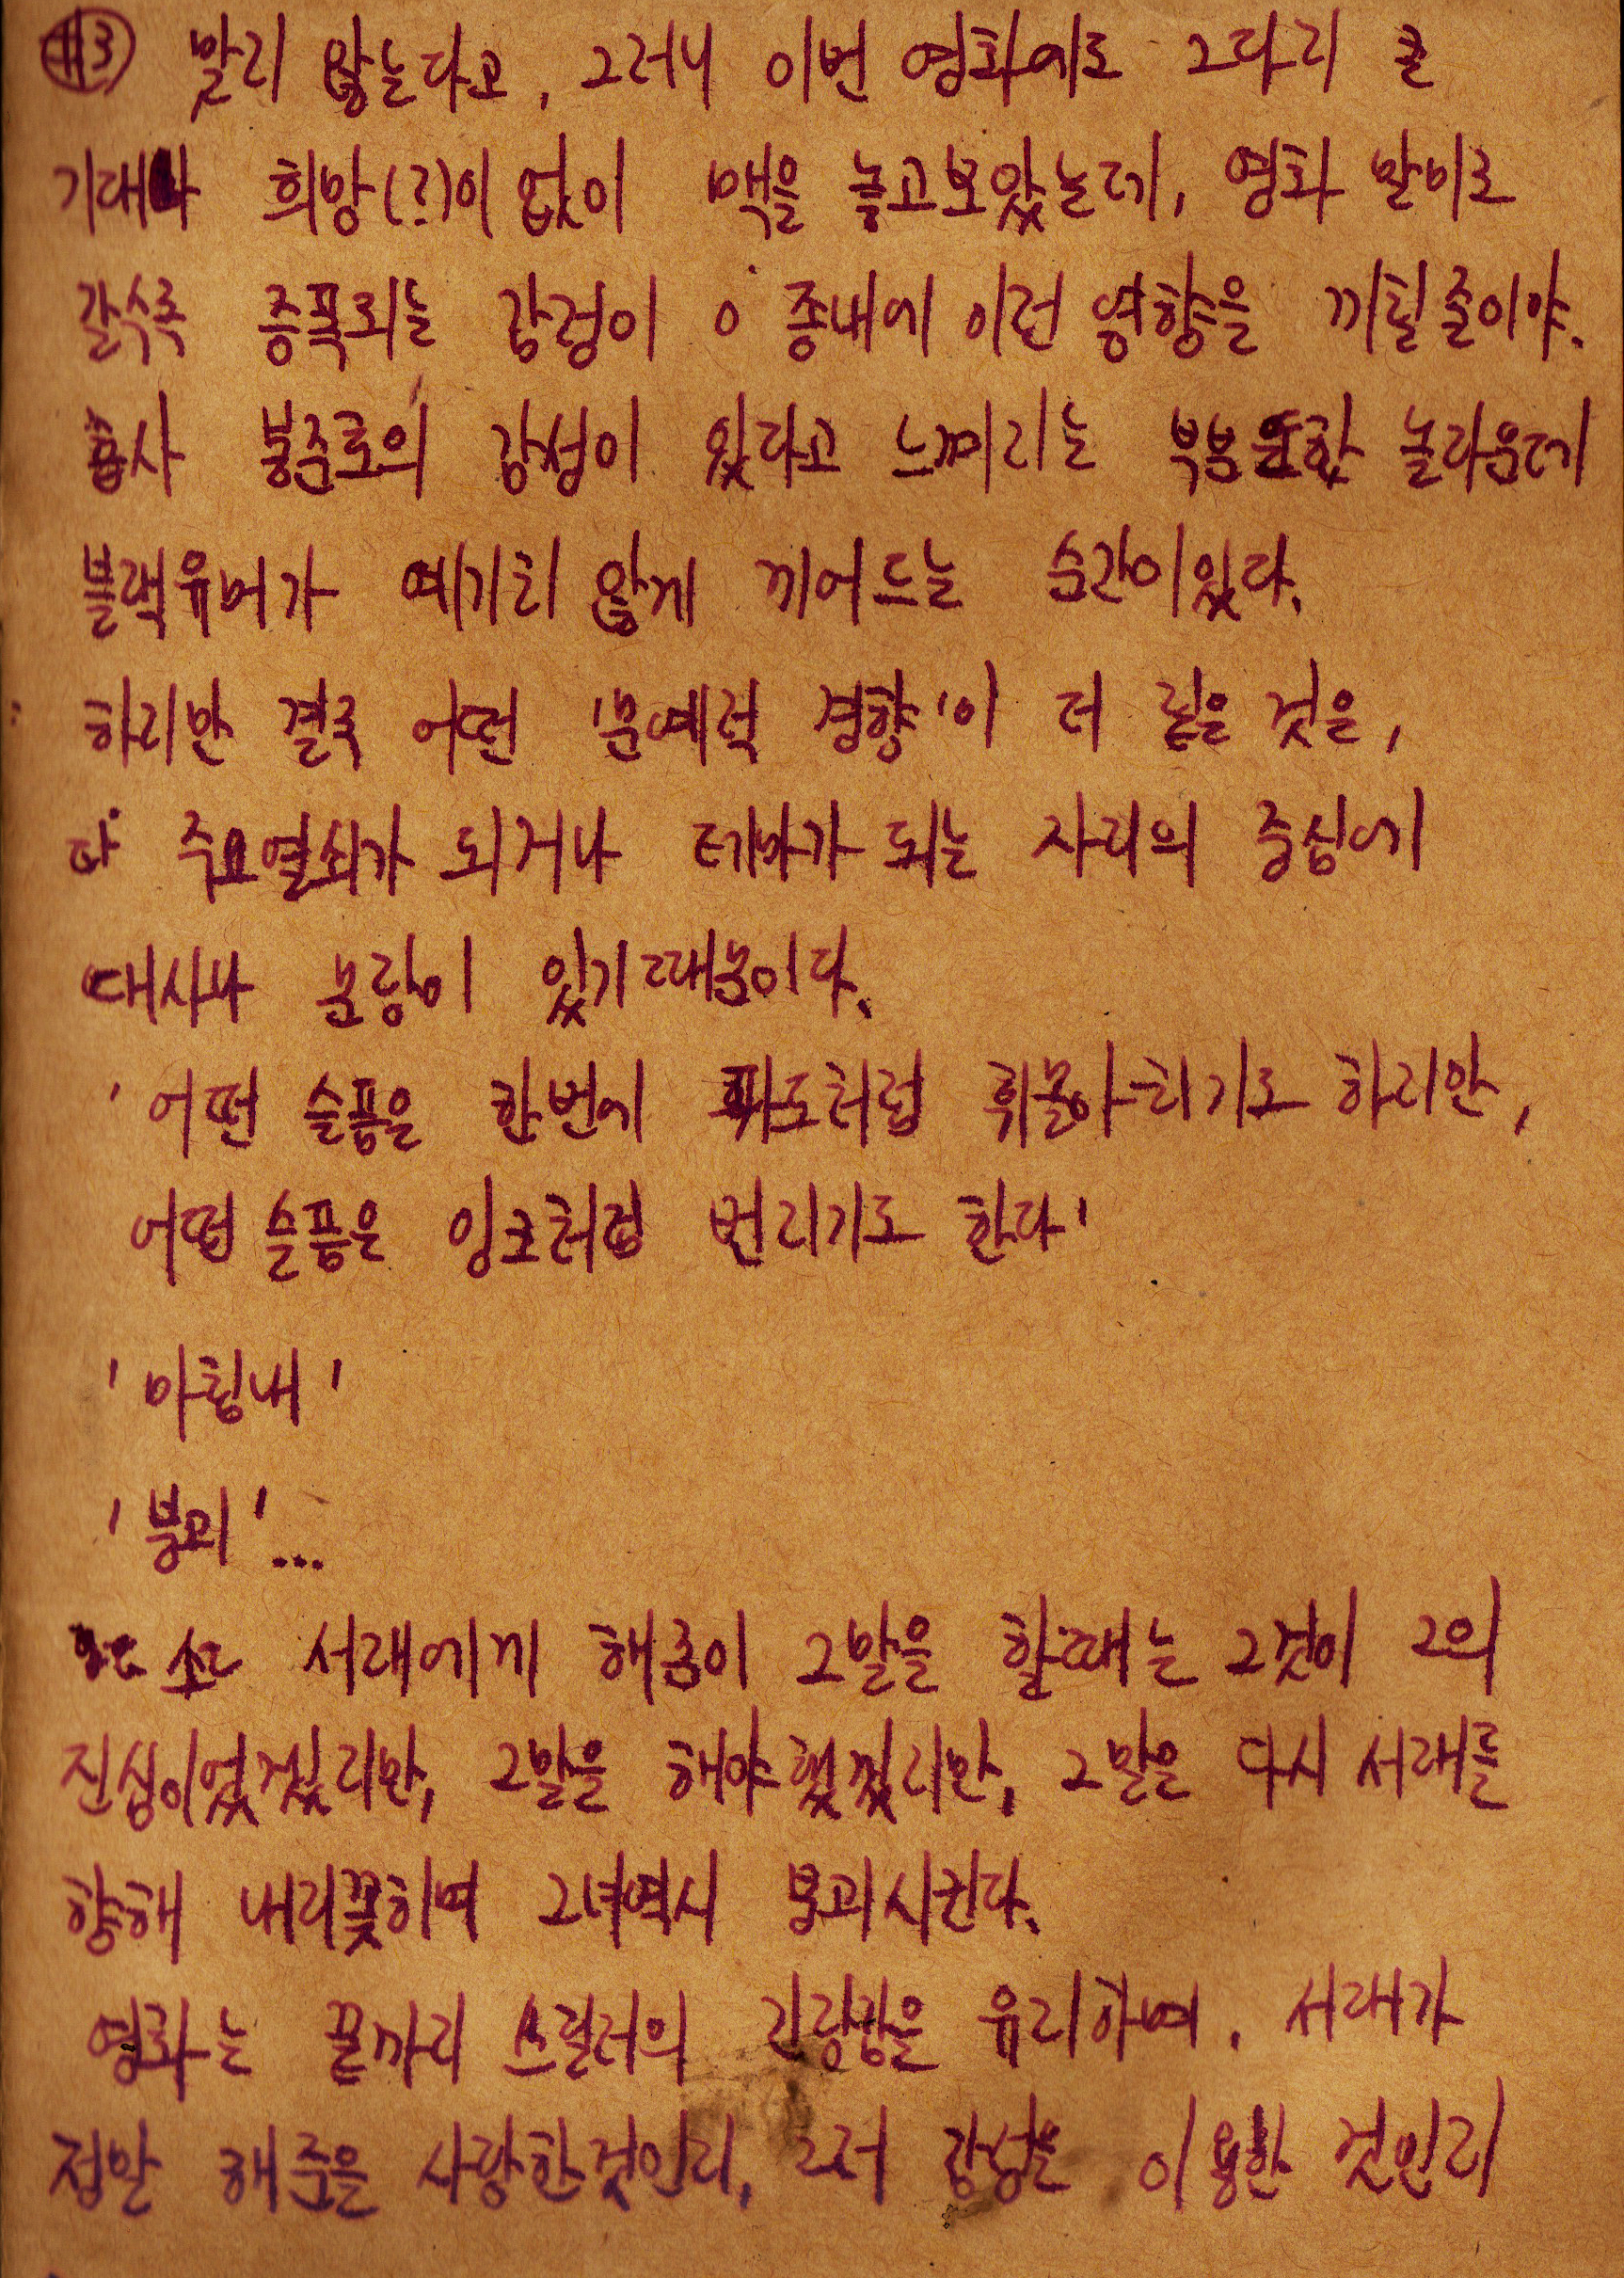 #3 맞지 않는다고, 그러니 이번 영화에도 그다지 큰
기대나 희망(?)이 없이 맥을 놓고보았는데, 영화 말미로
갈수록 증폭되는 감정이 종내에 이런 영향을 끼칠줄이야.
흡사 봉준호의 감성이 있다고 느껴지는 부분 또한 놀라운데
블랙유머가 예기치 않게 끼어드는 순간이있다.
하지만 결국 어떤 '문예적 경향'이 더 짙은 것은,
다 주요열쇠가 되거나 테마가 되는 자리의 중심에
대사나 문장이 있기때문이다.
'어떤 슬픔은 한번에 파도처럼 휘몰아치기도 하지만,
어떤 슬픔은 잉크처럼 번지기도 한다'
'마침내'
'붕괴'...
또 서래에게 해준이 그말을 할때는 그것이 그의
진심이었겠지만, 그말을 해야했겠지만, 그말은 다시 서래를
향해 내리꽂히며 그녀역시 붕괴시킨다.
영화는 끝까지 스릴러의 긴장감을 유지하며, 서래가
정말 해준을 사랑한것인지, 그저 감정을 이용한 것인지